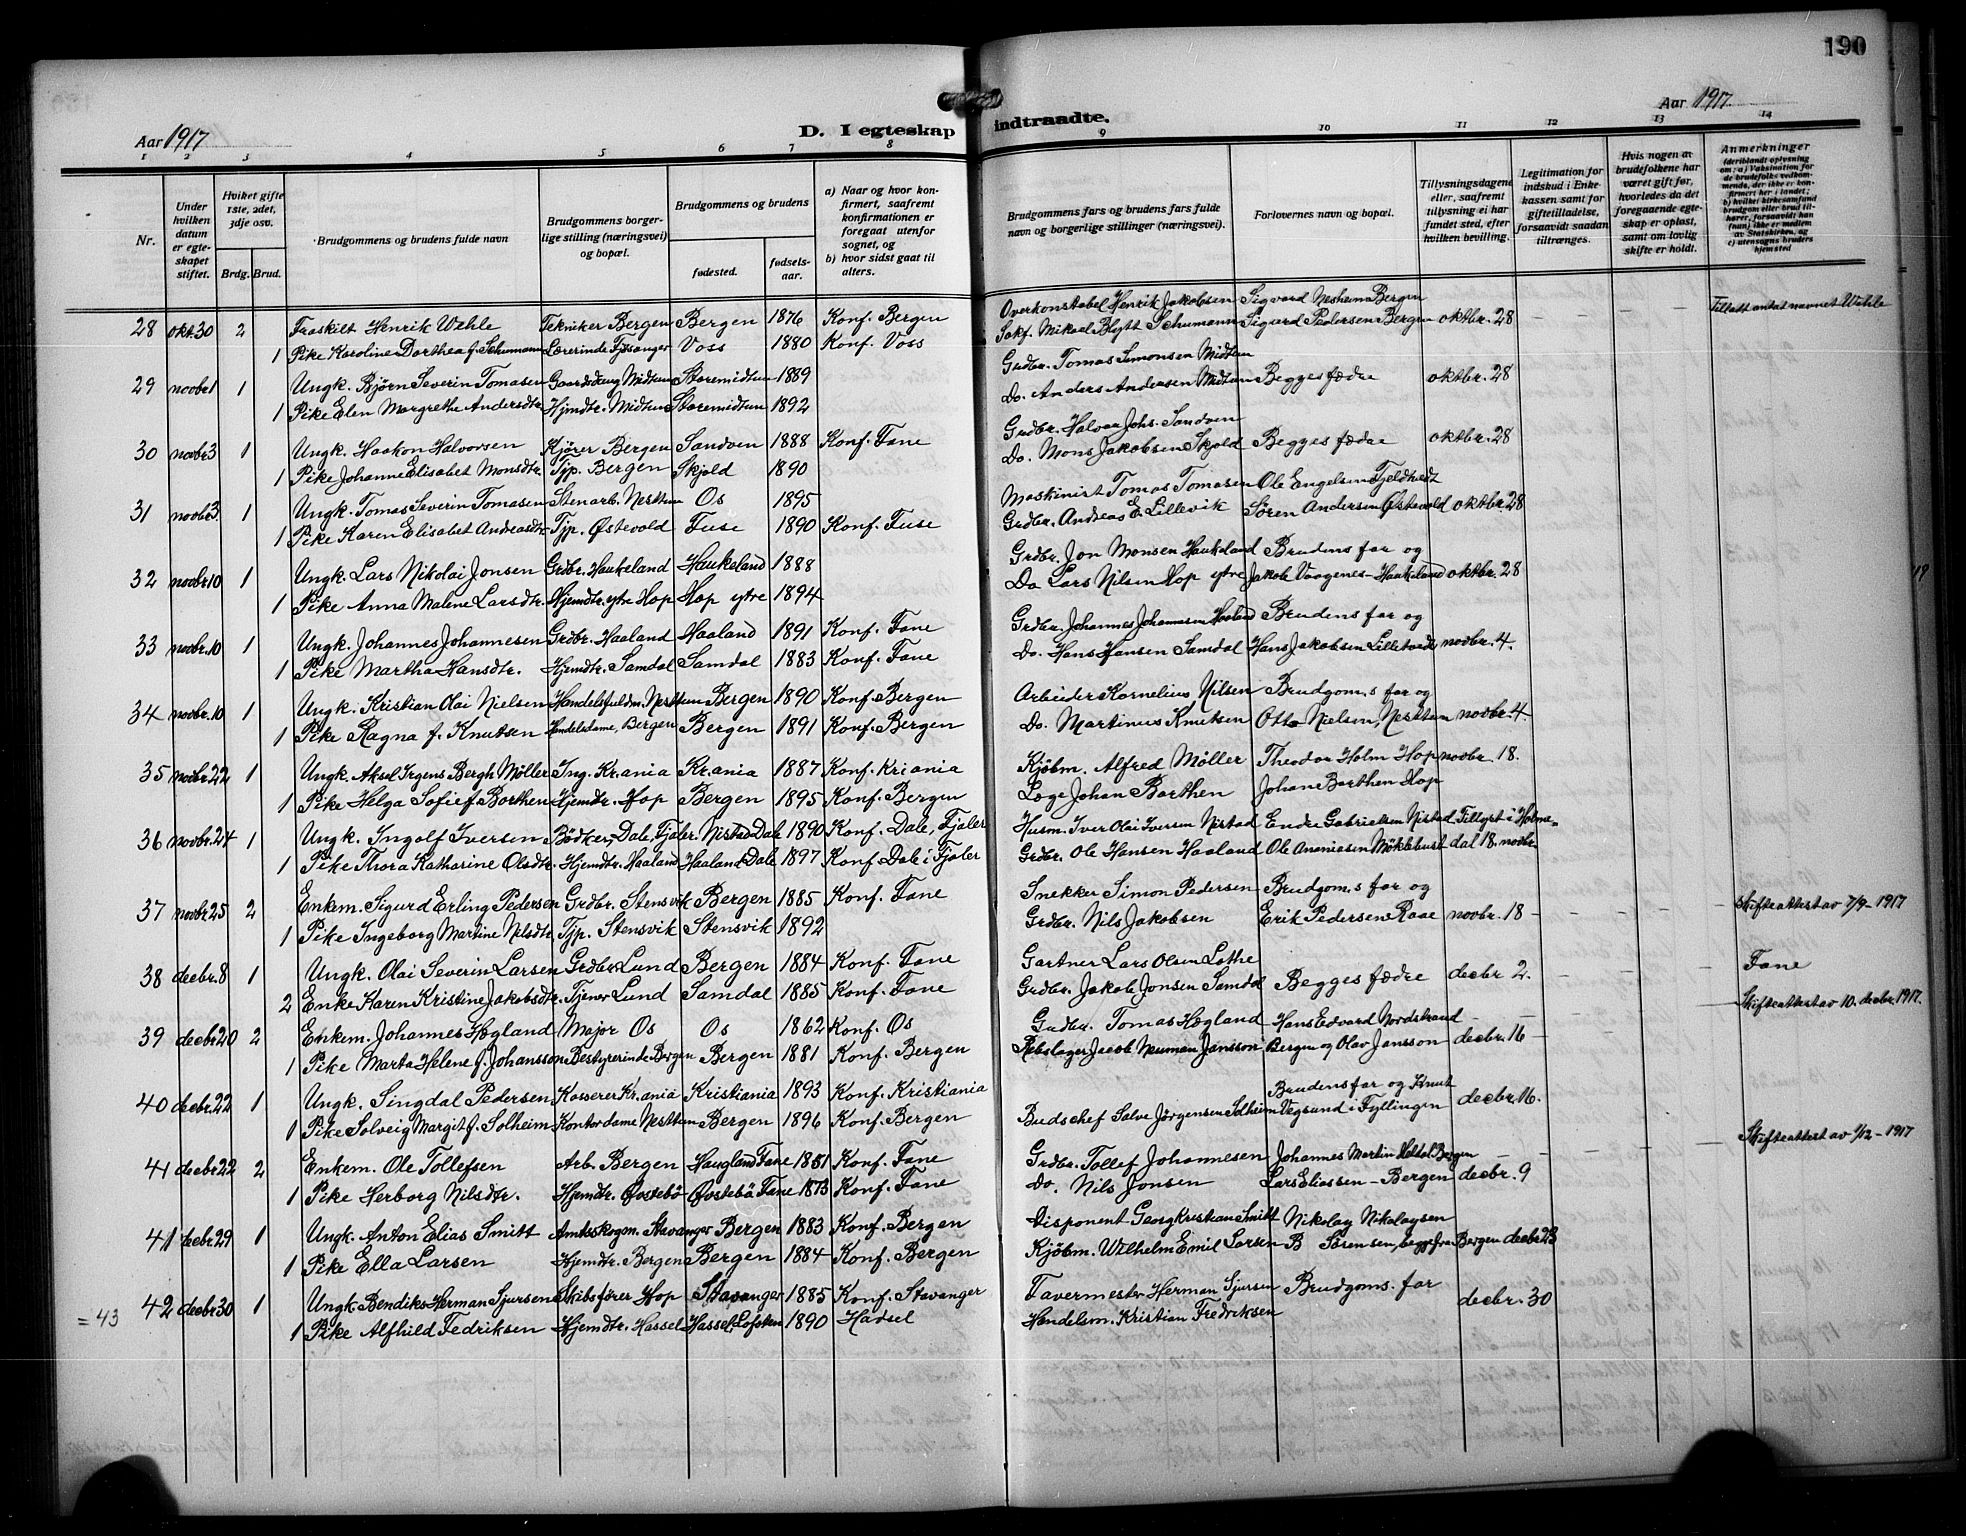 190
Aar 1917
D. I egteskap indtraadte.
Aar 1917
1 2 3 4 5 6 7 8 9 10 11 12 13 14
Nr.
Under hvilken datum er egteskapet stiftet.
Hvilket gifte 1ste, 2det, 3dje osv.
Brdg. Brud.
Brudgommens og brudens fulde navn
Brudgommens borgerlige stilling (næringsvei) og bopæl.
Brudgommens og brudens
fødested.
fødselsaar.
a) Naar og hvor konfirmert, saafremt konfirmationen er foregaat utenfor sognet, og
b) hvor sidst gaat til alters.
Brudgommens fars og brudens fars fulde navn og borgerlige stillinger (næringsvei).
Forlovernes navn og bopæl.
Tillysningsdagene eller, saafremt tillysning ei har fundet sted, efter hvilken bevilling.
Legitimation for indskud i Enkekassen samt for giftetilladelse, forsaavidt saadan tiltrænges.
Hvis nogen av brudefolkene har været gift før, hvorledes da det foregaaende egteskap er opløst, samt om lovlig skifte er holdt.
Anmerkninger
28 okt.30 2 Fraskilt Henrik Wehle Tekniker Bergen Bergen 1876 Konf. Bergen Overkonstabel Henrik Jakobsen Sigvard Nesheim Bergen Tillatt antat navnet Wehle
1 Pike Karoline Dorthea f. Schumann Lærerinde Fjøsanger Voss 1880 Konf. Voss Sakf. Mikael Blytt Schumann Sigurd Pedersen Bergen oktbr. 28
29 novbr. 1 1 Ungk. Bjørn Severin Tomasen Gaardsdreng Midtun Storemidtun 1889 Grdbr. Tomas Simonsen Midtun
1 Pike Elen Margrethe Andersdtr. Hjmdtr. Midtun Storemidtun 1892 Do. Anders Andersen Midtun Begges fædre oktbr. 28
30 novbr 3 1 Ungk. Haakon Halvorsen Kjører Bergen Sandven 1888 Konf. Fane Grdbr. Halvor Johs. Sandven
1 Pike Johanne Elisabet Monsdtr. Tjp. Bergen Skjold 1890 Do. Mons Jakobsen Skjold Begges fædre oktbr. 28
31 novbr 3. 1 Ungk. Tomas Severin Tomasen Stenarb. Nesttun Os 1895 Maskinist Tomas Tomasen Ole Engelsen Fjeldtvedt
1 Pike Karen Elisabet Andreasdtr. Tjp. Østevold Fuse 1890 Konf. Fuse Grdbr. Andreas E. Lillevik Søren Andersen Østevold oktbr. 28
32 novbr 10 1 Ungk. Lars Nikolai Jonsen Grdbr. Haukeland Haukeland 1888 Grdbr. Jon Monsen Haukeland Brudens far og
1 Pike Anna Malene Larsdtr. Hjemdtr. ytre Hop Hop ytre 1894 Do Lars Nilsen Hop ytre Jakob Vaagenes-Haukeland oktbr. 28
33 novbr. 10 1 Ungk. Johannes Johannesen Grdbr. Haaland Haaland 1891 Konf. Fane Grdbr. Johannes Johannesen Haaland Brudens far og
1 Pike Martha Hansdtr. Hjemdtr. Samdal Samdal 1883 Konf. Fane Do. Hans Hansen Samdal Hans Jakobsen Lilletvedt novbr. 4.
34 novbr. 10 1 Ungk. Kristian Olai Nielsen Handelsfuldm. Nesttun Bergen 1890 Konf. Bergen Arbeider Kornelius Nilsen Brudgom.s far og
1 Pike Ragna f. Knutsen Handelsdame, Bergen Bergen 1891 Konf. Bergen Do. Martinus Knutsen Otto Nielsen, Nesttun novbr. 4
35 novbr 22 1 Ungk. Aksel Irgens Bergh Møller Ing. Kr.ania Kr.ania 1887 Konf. Kriania Kjøbm. Alfred Møller Theodor Holm Hop novbr 18.
1 Pike Helga Sofie f. Borthen Hjemdtr. Hop Bergen 1895 Konf. Bergen Læge Johan Borthen Johane Borthen Hop
36 novbr. 24 1 Ungk. Ingolf Iversen Bødker, Dale, Fjaler Nistad Dale 1890 Konf. Dale, Fjaler Husm. Iver Olai Iversen Nistad Endre Gabrielsen Nistad Tillyst i Holme-
1 Pike Thora Katharine Olsdtr. Hjemdtr. Haaland Haaland-Dale 1897 Konf. Dale i Fjaler Grdbr. Ole Hansen Haaland Ole Ananiasen Møklebust dal 18. novbr.
37 novbr 25 2 Enkem. Sigurd Erling Pedersen Grdbr. Stensvik Bergen 1885 Konf. Fane Snekker Simon Pedersen Brudgom.s far og Skifteattest av 7/9-1917
1 Pike Ingeborg Martine Nilsdtr. Tjp. Stensvik Stensvik 1892 Grdbr. Nils Jakobsen Erik Pedersen Raae novbr. 18
38 decbr. 8 1 Ungk. Olai Severin Larsen Grdbr Lund Bergen 1884 Konf. Fane Gartner Lars Olsen Lothe Fane
2 Enke Karen Kristine Jakobsdtr. Tjener Lund Samdal 1885 Konf. Fane Grdbr. Jakob Jonsen Samdal Begges fædre decbr 2. Skifteattest av 10. decbr. 1917.
39 decbr 20 2 Enkem. Johannes Hægland Major Os Os 1862 Konf. Os Grdbr. Tomas Hægland Hans Edvard Nordstrand
1 Pike Marta Helene f. Johansson Bestyrerinde Bergen Bergen 1881 Konf. Bergen Rebslager Jacob Neuman Jansson Bergen og Olav Jansson decbr. 16
40 decbr. 22 1 Ungk. Singdal Pedersen Kasserer Kr.ania Kristiania 1893 Konf. Kristiania Brudens far og Knut
1 Pike Solveig Margit f. Solheim Kontordame Nesttun Bergen 1896 Konf. Bergen Budschef Salve Jørgensen Solheim Vegsund i Fyllingen decbr. 16.
41 decbr 22 2 Enkem. Ole Tollefsen Arb. Bergen Haugland Fane 1851 Konf. Fane Grdbr. Tollef Johannesen Johannes Martin Heldal Bergen Skifteattest av 1/12-1917
1 Pike Herborg Nilsdtr. Hjemdtr. Øvstebø Øvstebø Fane 1873 Konf. Fane Do. Nils Jonsen Lars Eliassen - Bergen decbr. 9
41 decbr 29 1 Ungk. Anton Elias Smitt Amtsskogm. Stavanger Bergen 1883 Konf. Bergen Disponent Georg Kristian Smitt Nikolay Nikolaysen
1 Pike Ella Larsen Hjemdtr. Bergen Bergen 1884 Konf. Bergen Kjøbm. Wilhelm Emil Larsen B Sørensen, begge fra Bergen decbr 23
42 decbr 30 1 Ungk. Bendiks Herman Sjursen Skibsfører Hop Stavanger 1885 Konf. Stavanger Favermester Herman Sjursen Brudgoms. far decbr. 30
= 43 1 Pike Alfhild Fedriksen Hjemdtr. Hassel Hassel Lofoten 1890 Hadsel Handelsm. Kristian Fredriksen